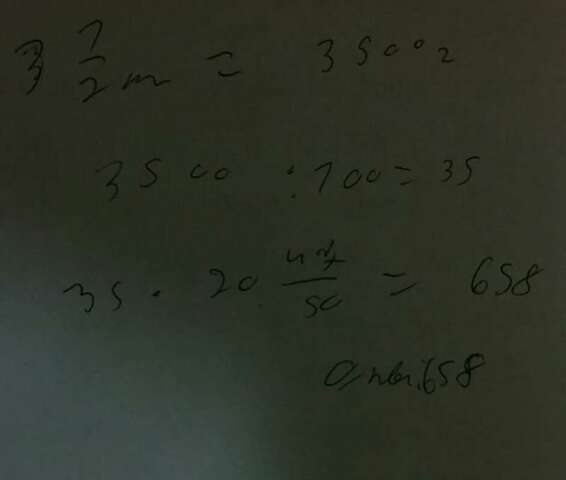 3 1/2 т = 3500г
3500 : 100 = 35
35 · 20 47/50 = 658
Ответ: 658